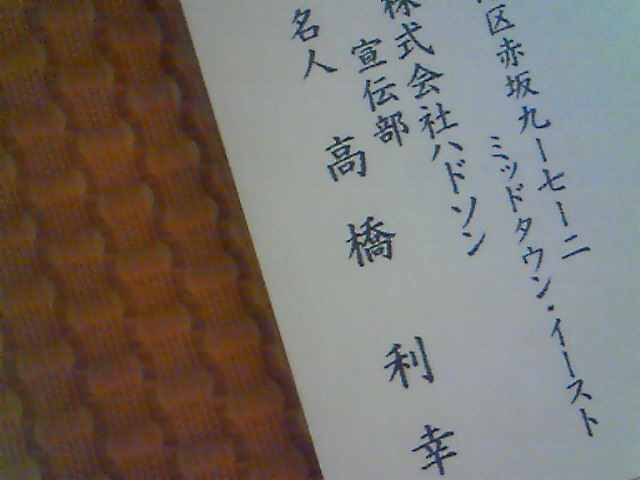 区赤坂九ー七ー二
ミッドタウン・イースト
株式会社ハドソン
宣伝部
名人
高橋利幸